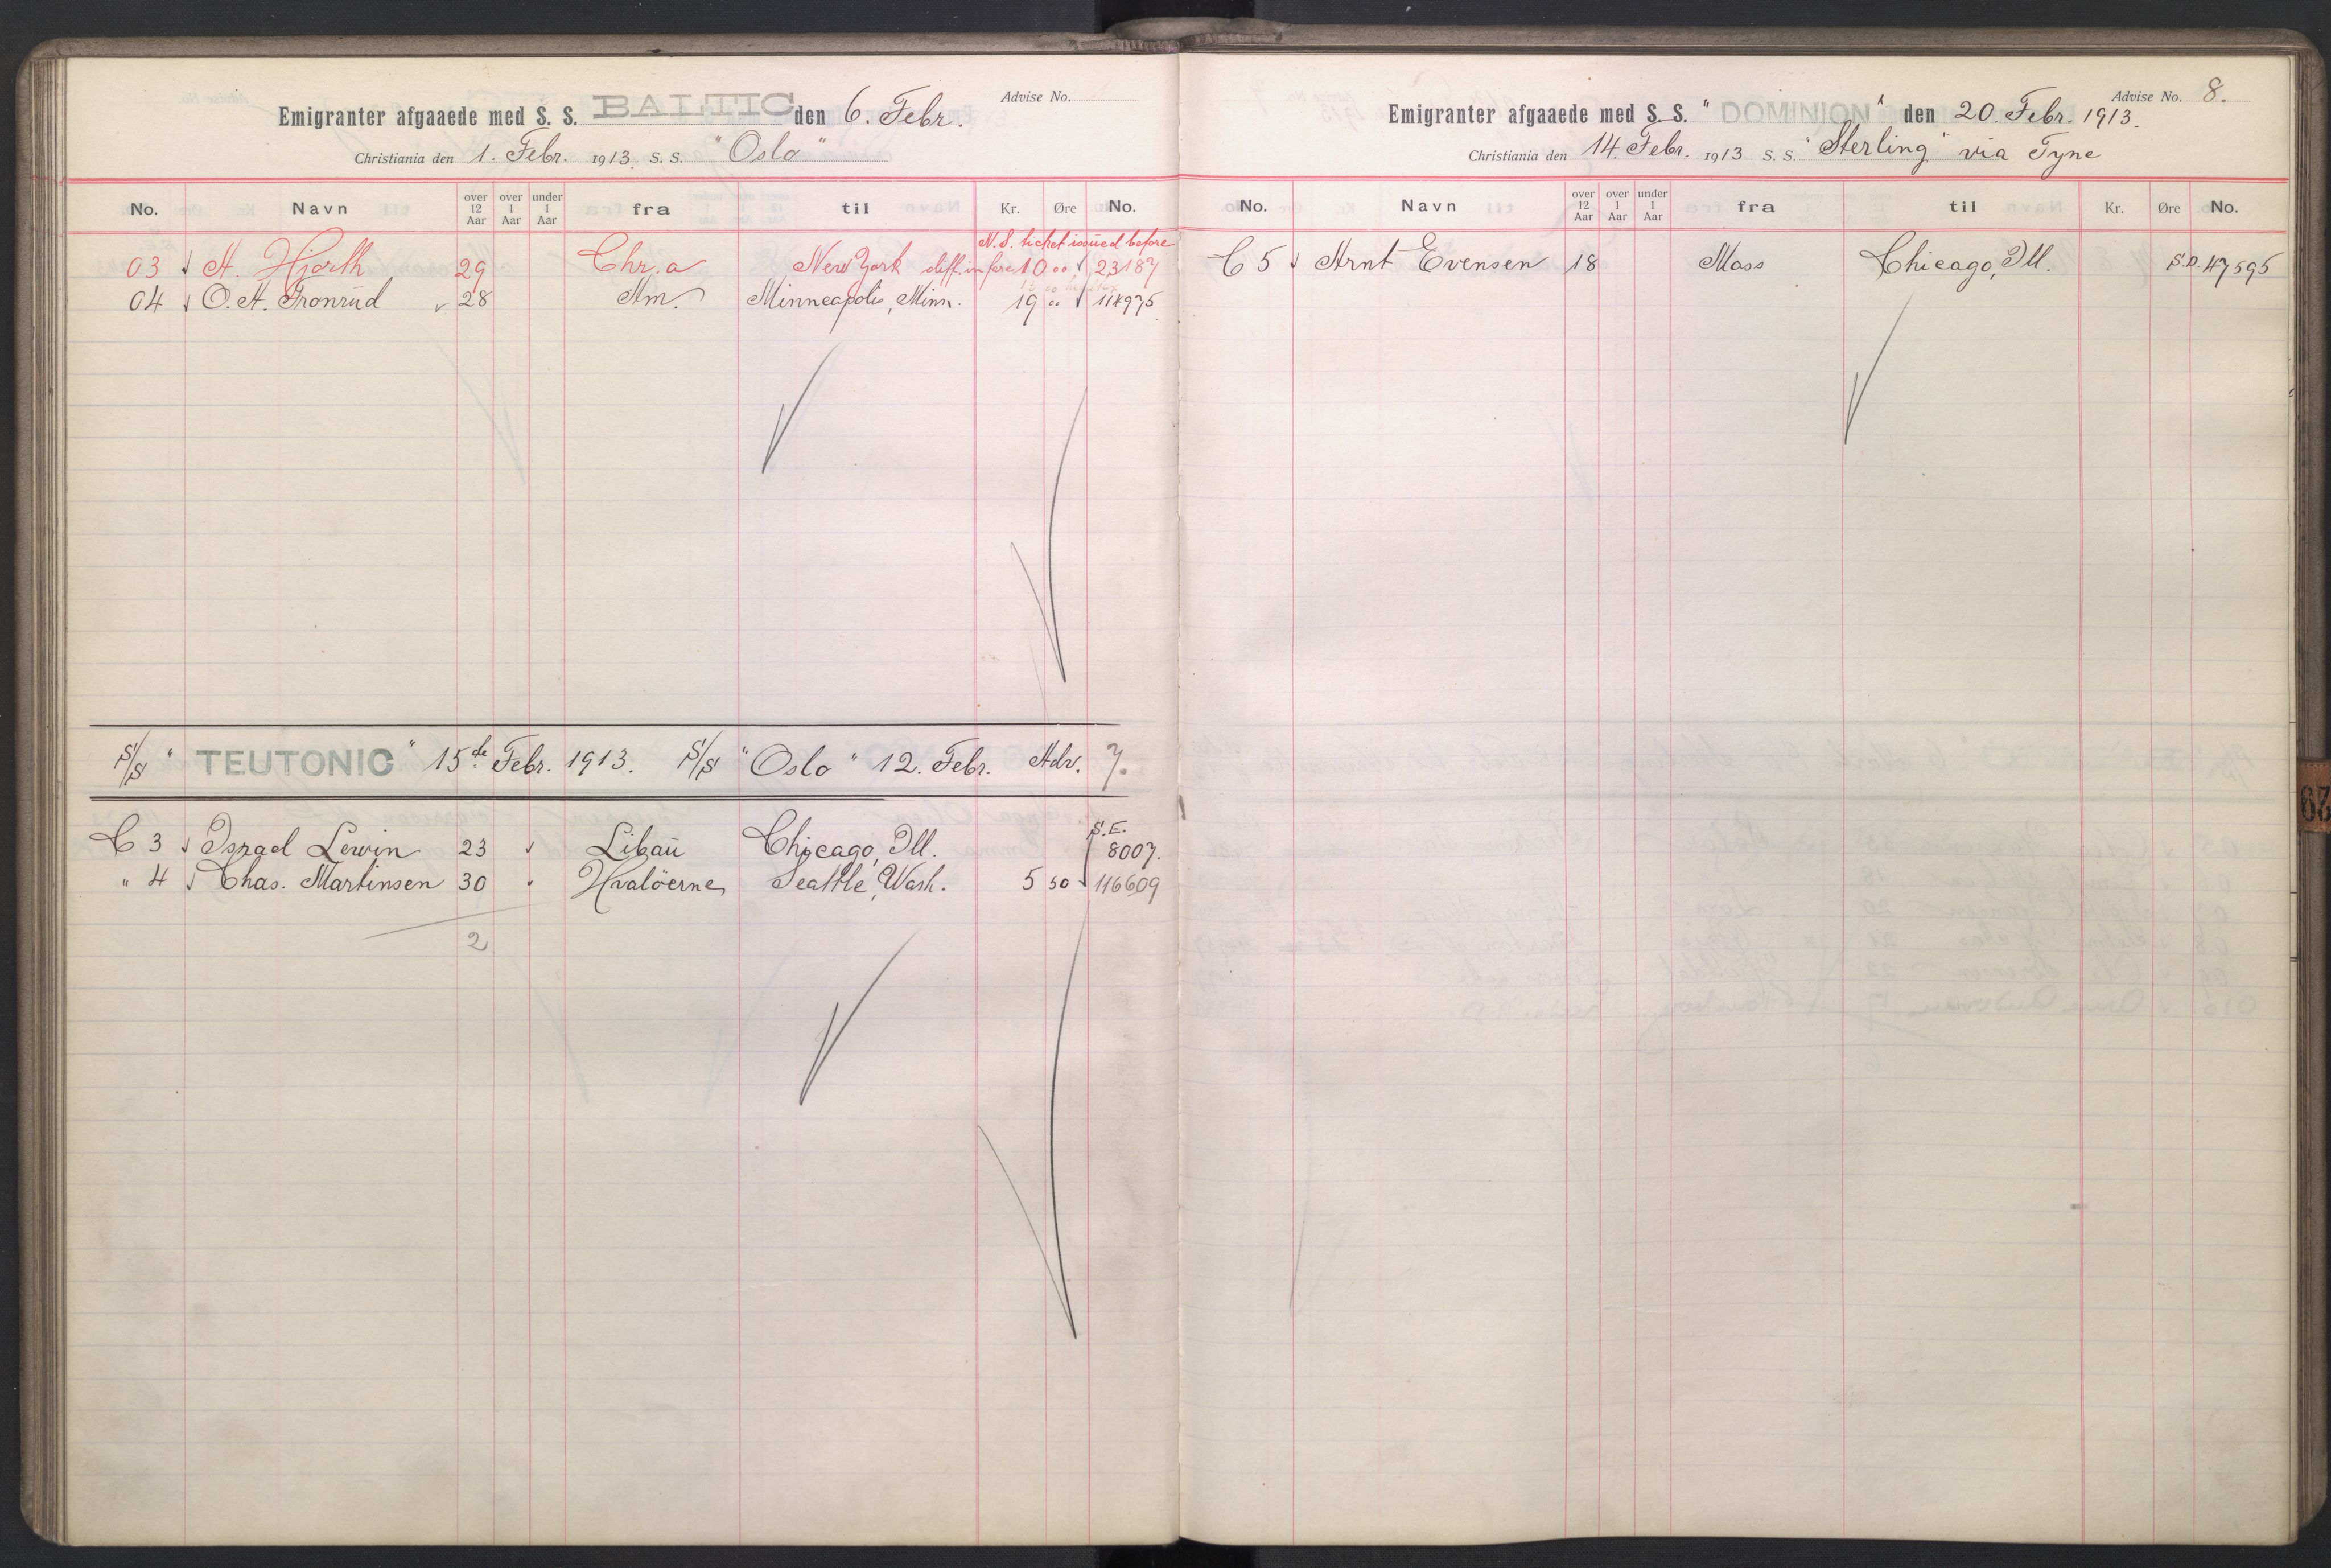 Advise No.
Emigranter afgaaede med S. S. BALTIC den 6. Febr.
Christiania den 1. Febr. 1913 S. S. "Oslo"
No. Navn over 12 Aar over 1 Aar under 1 Aar fra til Kr. Øre No.
N.S. ticket issued before
03 A. Hjorth 29 Chr.a New York diff. in fare 10 00 23187
04 O. A. Tronrud 28 Am. Minneapolis, Minn. 19 00 114975
S/S "TEUTONIC" 15de Febr. 1913. S/S "Oslo" 12. Febr. Adv. 7.
C 3 Israel Lewin 23 Libau Chicago, Ill. S.E. 8007.
" 4 Chas. Martinsen 30 " Hvalöerne Seattle, Wash. 5 50 116609
2
Advise No. 8.
Emigranter afgaaede med S. S. "DOMINION" den 20. Febr. 1913.
Christiania den 14. Febr. 1913 S. S. "Sterling" via Tyne
No. Navn over 12 Aar over 1 Aar under 1 Aar fra til Kr. Øre No.
C 5 Arnt Evensen 18 Moss Chicago, Ill. S.D. 47595